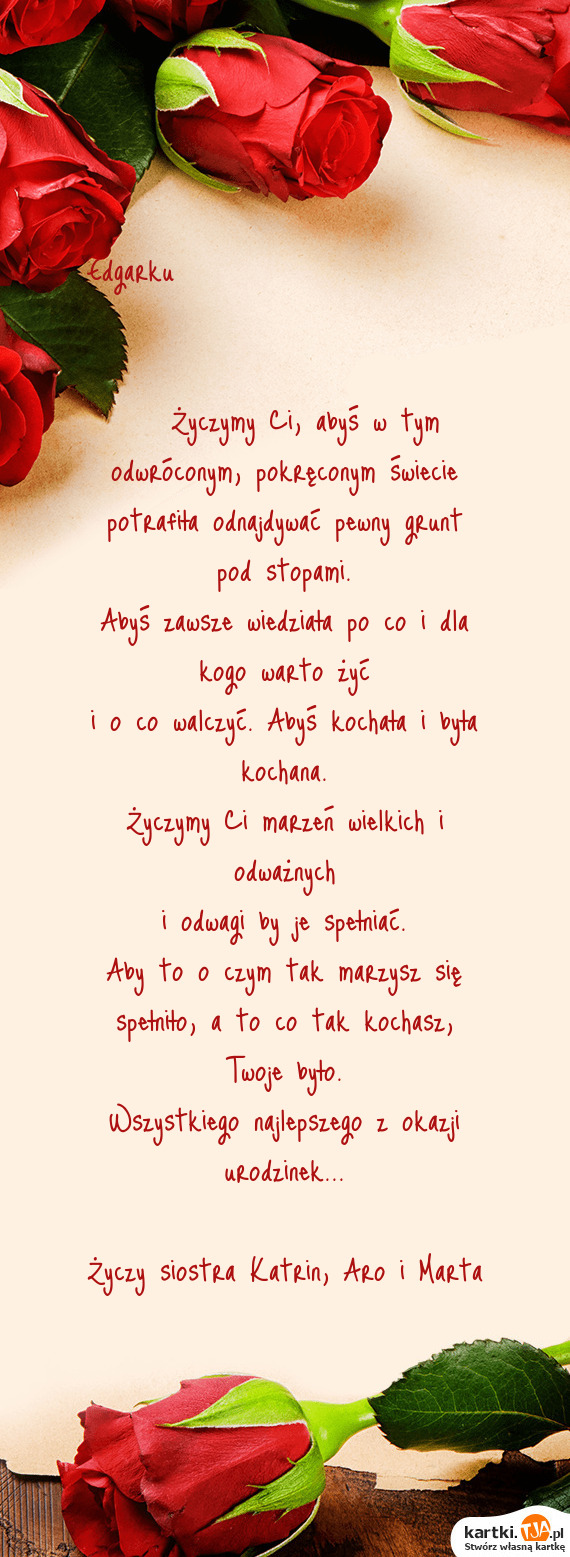 Edgarku
Życzymy Ci, abyś w tym
odwróconym, pokręconym świecie
potrafiła odnajdywać pewny grunt
pod stopami.
Abyś zawsze wiedziała po co i dla
kogo warto żyć
i o co walczyć. Abyś kochała i była
kochana.
Życzymy Ci marzeń wielkich i
odważnych
i odwagi by je spełniać.
Aby to o czym tak marzysz się
spełniło, a to co tak kochasz,
Twoje było.
Wszystkiego najlepszego z okazji
urodzinek...
Życzy siostra Katrin, Aro i Marta
kartki.TJA.pl
Stwórz własną kartkę